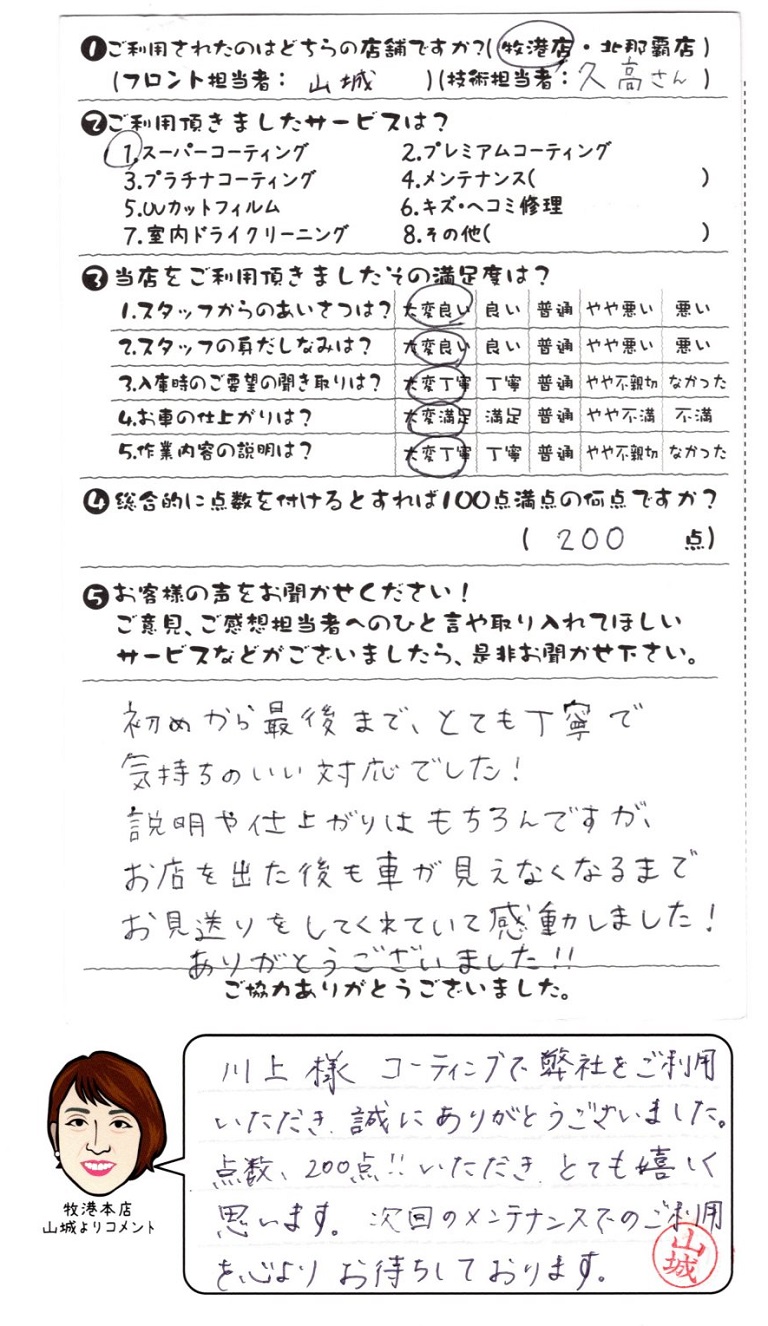 ❶ご利用されたのはどちらの店舗ですか?(牧港店・北那覇店)
(フロント担当者: 山城 )(技術担当者: 久高さん )
❷ご利用頂きましたサービスは?
1.スーパーコーティング 2.プレミアムコーティング
3.プラチナコーティング 4.メンテナンス( )
5.UVカットフィルム 6.キズ・ヘコミ修理
7.室内ドライクリーニング 8.その他( )
❸当店をご利用頂きましたその満足度は?
1.スタッフからのあいさつは? 大変良い 良い 普通 やや悪い 悪い
2.スタッフの身だしなみは? 大変良い 良い 普通 やや悪い 悪い
3.入庫時のご要望の聞き取りは? 大変丁寧 丁寧 普通 やや不親切 なかった
4.お車の仕上がりは? 大変満足 満足 普通 やや不満 不満
5.作業内容の説明は? 大変丁寧 丁寧 普通 やや不親切 なかった
❹総合的に点数を付けるとすれば100点満点の何点ですか?
( 200 点)
❺お客様の声をお聞かせください!
ご意見、ご感想担当者へのひと言や取り入れてほしい
サービスなどがございましたら、是非お聞かせ下さい。
初めから最後まで、とても丁寧で
気持ちのいい対応でした!
説明や仕上がりはもちろんですが、
お店を出た後も車が見えなくなるまで
お見送りをしてくれていて感動しました!
ありがとうございました!!
ご協力ありがとうございました。
川上様 コーティングで弊社をご利用
いただき、誠にありがとうございました。
点数、200点!!いただき、とても嬉しく
思います。次回のメンテナンスでのご利用
を、心よりお待ちしております。
山城
牧港本店
山城よりコメント